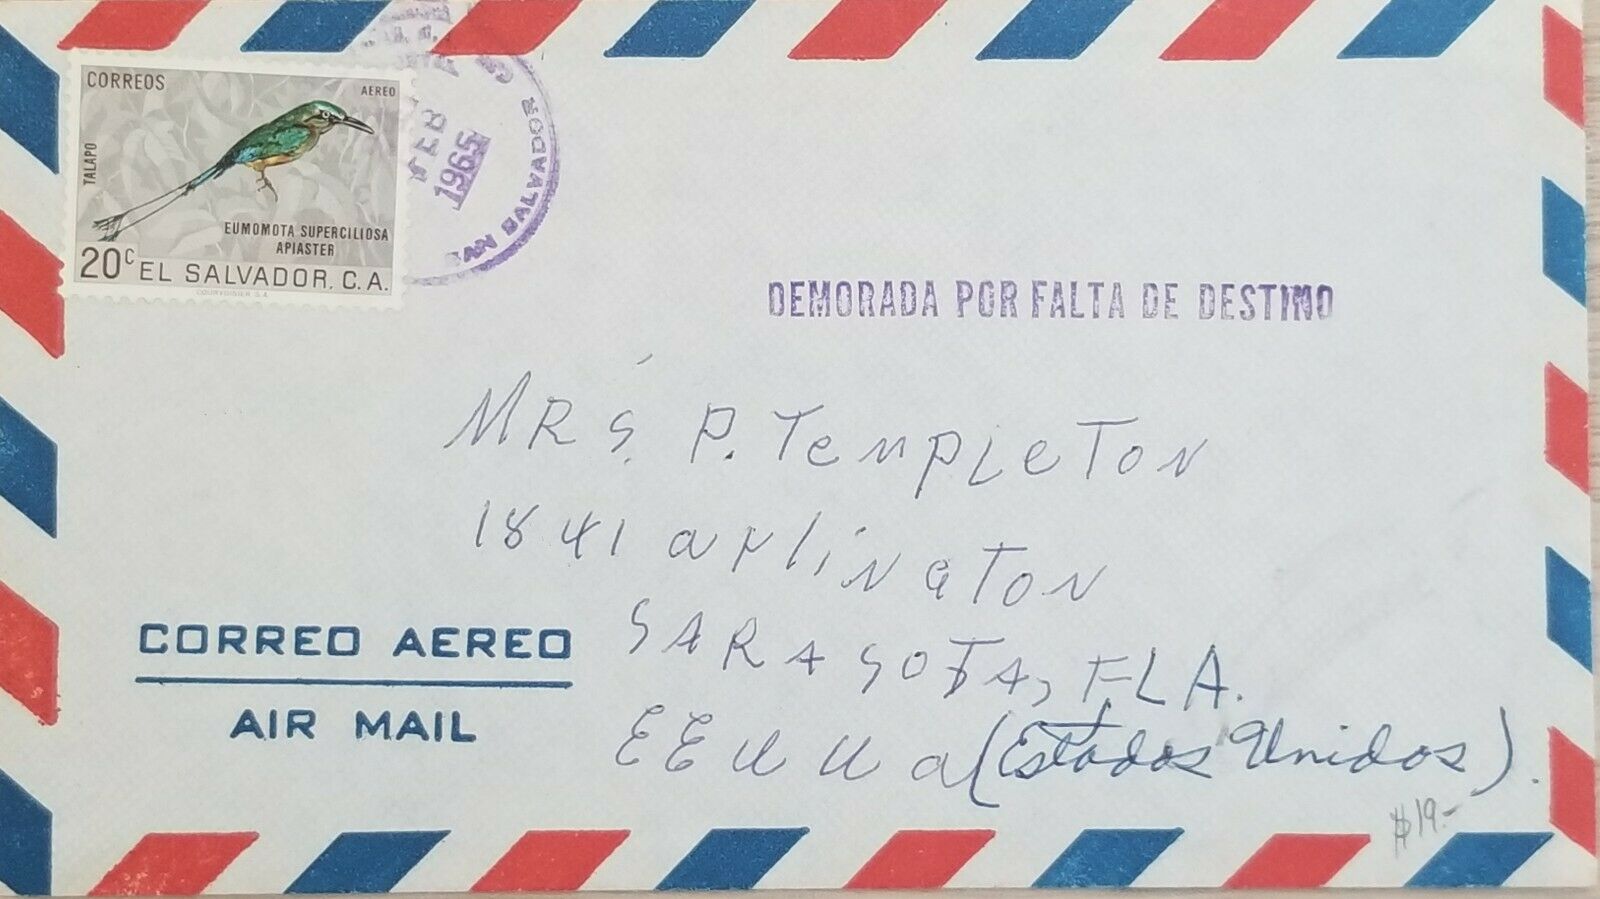 CORREOS
AEREO
TALAPO
EUMOMOTA SUPERCILIOSA
APIASTER
20c EL SALVADOR. C.A.
COURVOISIER S.A.
FEB
1965
SAN SALVADOR
DEMORADA POR FALTA DE DESTINO
MRS. P. TempLeTon
1841 arlinGTon
SARASOTA, FLA.
EEUUa (Estados Unidos).
CORREO AEREO
AIR MAIL
$19.-